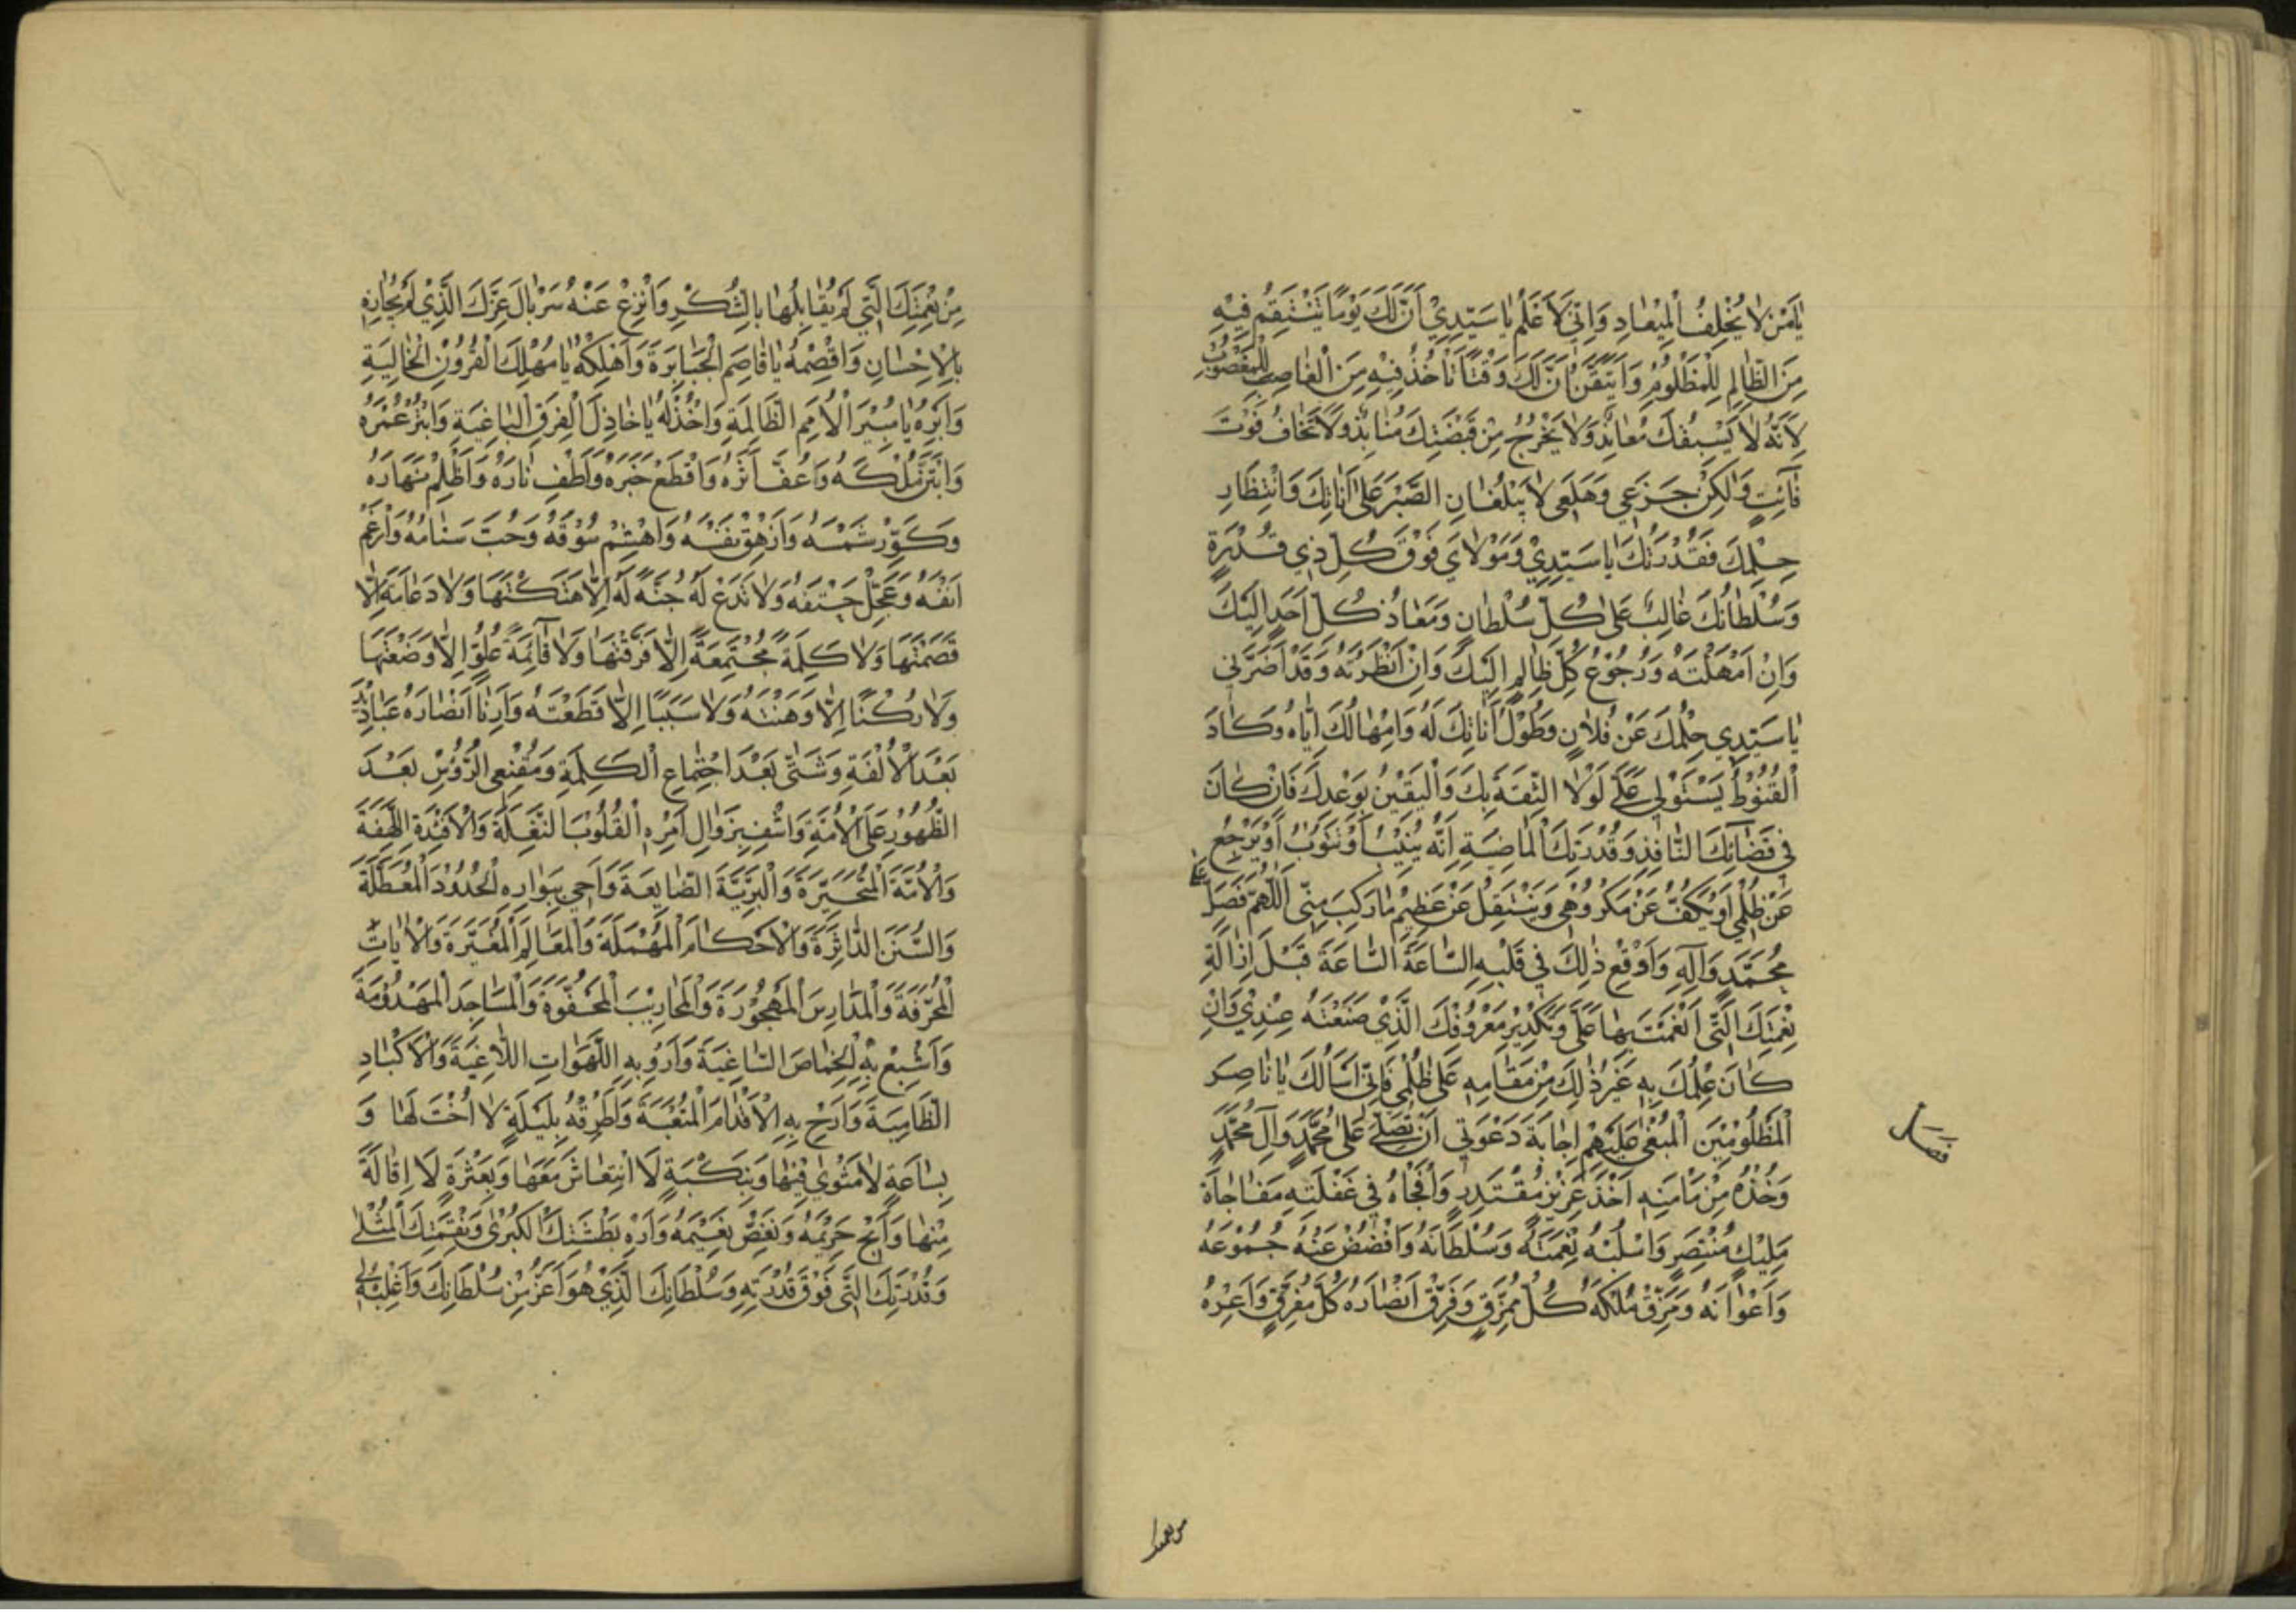 يَا مَنْ لَا يُخْلِفُ الْمِيعَادِ وَاِنّي لَاَعْلَمُ يَا سَيِّدِيْ اَنَّ لَكَ يَوْمًا تَنْتَقِمُ فِيْهِ
مِنَ الظَّالِمِ لِلْمَظْلُومِ وَاَتَيَقَّنُ اَنَّ لَكَ وَقْتًا تَأخُذُ فِيْهِ مِنَ الْغَاصِبِ لِلْمَغْصُوْبِ
لِاَنَّهُ لَا يَسْبِقُكَ مُعَانِدٌ وَلَا يَخْرُجُ مِنْ قَبْضَتِكَ مُنَابِذٌ وَلَا تَخَافُ فَوْتَ
فَائِتٍ وَلٰكِنْ جَزَعِي وَهَلَعِي لَا يَبْلُغَانِ الصَّبْرَ عَلٰى اَنَاتِكَ وَانْتِظَارِ
حِلْمِكَ فَقُدْرَتُكَ يَا سَيِّدِيْ وَمَوْلَايَ فَوْقَ كُلِّ ذِي قُدْرَةٍ
وَسُلْطَانُكَ غَالِبٌ عَلٰى كُلِّ سُلْطَانٍ وَمَعَادُ كُلِّ اَحَدٍ اِلَيْكَ
وَاِنْ اَمْهَلْتَهُ وَرُجُوْعُ كُلِّ ظَالِمٍ اِلَيْكَ وَاِنْ اَنْظَرْتَهُ وَقَدْ اَضَرَّنِي
يَا سَيِّدِي حِلْمُكَ عَنْ فُلَانٍ وَطُوْلُ اَنَاتِكَ لَهُ وَاِمْهَالُكَ اِيَّاهُ وَكَادَ
الْقُنُوْطُ يَسْتَوْلِي عَلَيَّ لَوْلَا الثِّقَةُ بِكَ وَالْيَقِيْنُ بِوَعْدِكَ فَاِنْ كَانَ
فِي قَضَائِكَ النَّافِذِ وَقُدْرَتِكَ الْمَاضِيَةِ اَنَّهُ يُنِيْبُ اَوْ يَتُوْبُ اَوْ يَرْجِعُ
عَنْ ظُلْمِي اَوْ يَكُفُّ عَنْ مَكْرُوهِي وَيَنْتَقِلُ عَنْ عَظِيْمِ مَا رَكِبَ مِنّي اَللّٰهُمَّ فَصَلِّ عَلٰى
مُحَمَّدٍ وَآلِهِ وَاَوْقِعْ ذٰلِكَ فِي قَلْبِهِ السَّاعَةَ السَّاعَةَ قَبْلَ اِزَالَةِ
نِعْمَتِكَ الَّتِي اَنْعَمْتَ بِهَا عَلَيَّ وَتَكْدِيْرِ مَعْرُوفِكَ الَّذِي صَنَعْتَهُ عِنْدِيْ وَاِنْ
كَانَ عِلْمُكَ بِهِ غَيْرَ ذٰلِكَ مِنْ مَقَامِهِ عَلٰى ظُلْمِي فَاِنّي اَسْأَلُكَ يَا نَاصِرَ
الْمَظْلُوْمِيْنَ الْمَبْغِيِّ عَلَيْهِمْ اِجَابَةَ دَعْوَتِي اَنْ تُصَلِّيَ عَلٰى مُحَمَّدٍ وَآلِ مُحَمَّدٍ
وَخُذْهُ مِنْ مَأْمَنِهِ اَخْذَ عَزِيْزٍ مُقْتَدِرٍ وَافْجَأْهُ فِي غَفْلَتِهِ مَفَاجَاَةَ
مَلِيْكٍ مُنْتَصِرٍ وَاسْلُبْهُ نِعْمَتَهُ وَسُلْطَانَهُ وَافْضُضْ عَنْهُ جُمُوْعَهُ
وَاَعْوَانَهُ وَمَزِّقْ مُلْكَهُ كُلَّ مُمَزَّقٍ وَفَرِّقْ اَنْصَارَهُ كُلَّ مُفَرَّقٍ وَاَعِرْهُ
فصل
من نعمتك
مِنْ نِعْمَتِكَ الَّتِي لَمْ يُقَابِلْهَا بِالشُّكْرِ وَانْزِعْ عَنْهُ سَرْبَالَ عِزِّكَ الَّذِيْ لَمْ يُجَازِهِ
بِالْاِحْسَانِ وَاقْصِمْهُ يَا قَاصِمَ الْجَبَابِرَةِ وَاَهْلِكْهُ يَا مُهْلِكَ الْقُرُوْنِ الْخَالِيَةِ
وَاَبِرْهُ يَا مُبِيْرَ الْاُمَمِ الظَّالِمَةِ وَاخْذُلْهُ يَا خَاذِلَ الْفِرَقِ الْبَاغِيَةِ وَابْتُرْ عُمْرَهُ
وَابْتَزَّ مُلْكَهُ وَاعْفُ اَثَرَهُ وَاقْطَعْ خَبَرَهُ وَاَطْفِ نَارَهُ وَاَظْلِمْ نَهَارَهُ
وَكَوِّرْ شَمْسَهُ وَاَزْهِقْ نَفْسَهُ وَاهْشِمْ سُوْقَهُ وَجُبَّ سَنَامَهُ وَاَرْغِمْ
اَنْفَهُ وَعَجِّلْ حَتْفَهُ وَلَا تَدَعْ لَهُ جُنَّةً لَهُ اِلَّا هَتَكْتَهَا وَلَا دَعَامَةً اِلَّا
قَصَمْتَهَا وَلَا كَلِمَةً مُجْتَمِعَةً اِلَّا فَرَّقْتَهَا وَلَا قَائِمَةَ عُلُوٍّ اِلَّا وَضَعْتَهَا
وَلَا رُكْنًا اِلَّا وَهَنْتَهُ وَلَا سَبَبًا اِلَّا قَطَعْتَهُ وَاَرِنَا اَنْصَارَهُ عَبَادِيْدَ
بَعْدَ الْاُلْفَةِ وَشَتّٰى بَعْدَ اجْتِمَاعِ الْكَلِمَةِ وَمُقْنِعِي الرُّؤُسِ بَعْدَ
الظُّهُوْرِ عَلَى الْاُمَّةِ وَاشْفِ بِزَوَالِ اَمْرِهِ الْقُلُوْبَ النَّغِلَةَ وَالْاَفْئِدَةَ اللَّهِفَةَ
وَالْاُمَّةَ الْمُتَحَيِّرَةَ وَالْبَرِيَّةَ الضَّايِعَةَ وَاَحْيِ بِبَوَارِهِ الْحُدُوْدَ الْمُعَطَّلَةَ
وَالسُّنَنَ الدَّاثِرَةَ وَالْاَحْكَامَ الْمُهْمَلَةَ وَالْمَعَالِمَ الْمُغَيَّرَةَ وَالْاٰيَاتِ
الْمُحَرَّفَةَ وَالْمَدَارِسَ الْمَهْجُوْرَةَ وَالْمَحَارِيْبَ الْمَجْفُوَّةَ وَالْمَسَاجِدَ الْمَهْدُوْمَةَ
وَاَشْبِعْ بِهِ الْخِمَاصَ السَّاغِبَةَ وَاَرْوِ بِهِ اللَّهَوَاتِ اللَّاغِبَةَ وَالْاَكْبَادَ
الظَّامِيَةَ وَاَرِحْ بِهِ الْاَقْدَامَ الْمُتْعَبَةَ وَاطْرُقْهُ بِلَيْلَةٍ لَا اُخْتَ لَهَا وَ
بِسَاعَةٍ لَا مَثْوٰى فِيْهَا وَبِنَكْبَةٍ لَا انْتِعَاشَ مَعَهَا وَبِعَثْرَةٍ لَا اِقَالَةَ
مِنْهَا وَاَبِحْ حَرِيْمَهُ وَنَغِّصْ نَعِيْمَهُ وَاَرِهِ بَطْشَتَكَ الْكُبْرٰى وَنِقْمَتَكَ الْمُثْلٰى
وَقُدْرَتَكَ الَّتِي فَوْقَ قُدْرَتِهِ وَسُلْطَانَكَ الَّذِيْ هُوَ اَعَزُّ مِنْ سُلْطَانِكَ وَاغْلِبْهُ لِي